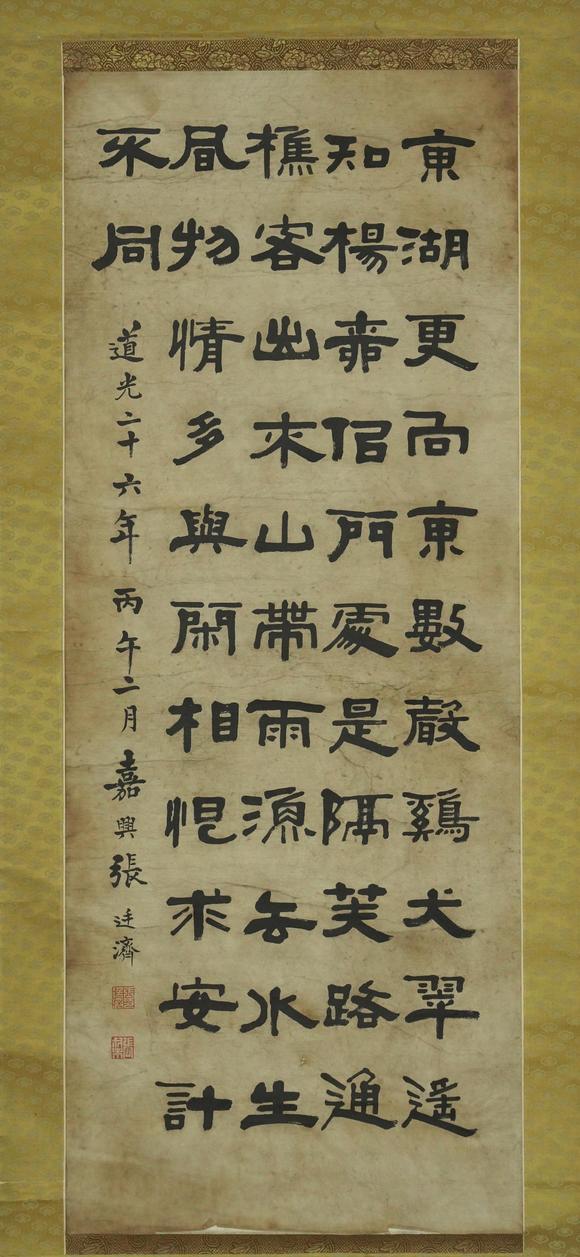 東湖更向東數聲鷄犬翠遙
知楊門處是隔芙路通
樵客出來山帶雨漁去水生
風物情多與閑相恨求安計
不同
道光二十六年丙午二月嘉興張廷濟